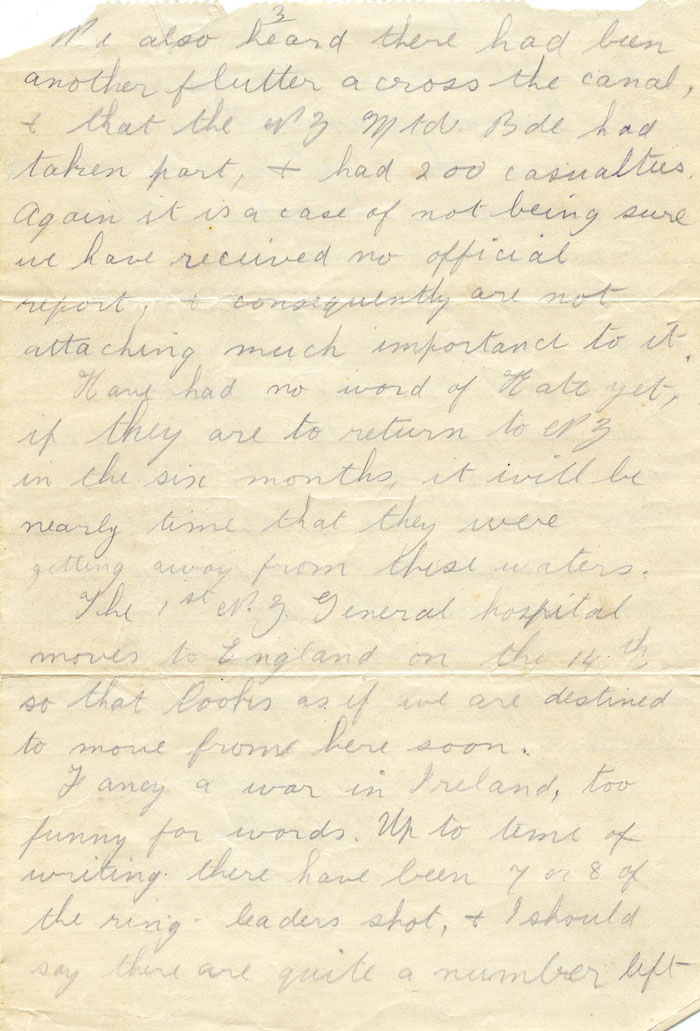 3
We also heard there had been
another flutter across the canal,
& that the NZ Mtd. Bde had
taken part, & had 200 casualties.
Again it is a case of not being sure
we have received no official
report, & consequently are not
attaching much importance to it.
Have had no word of Kate yet,
if they are to return to NZ
in the six months, it will be
nearly time that they were
getting away from these waters.
The 1st N.Z. General hospital
moves to England on the 14th,
so that looks as if we are destined
to move from here soon.
Fancy a war in Ireland, too
funny for words. Up to time of
writing there have been 7 or 8 of
the ring-leaders shot, & I should
say there are quite a number left